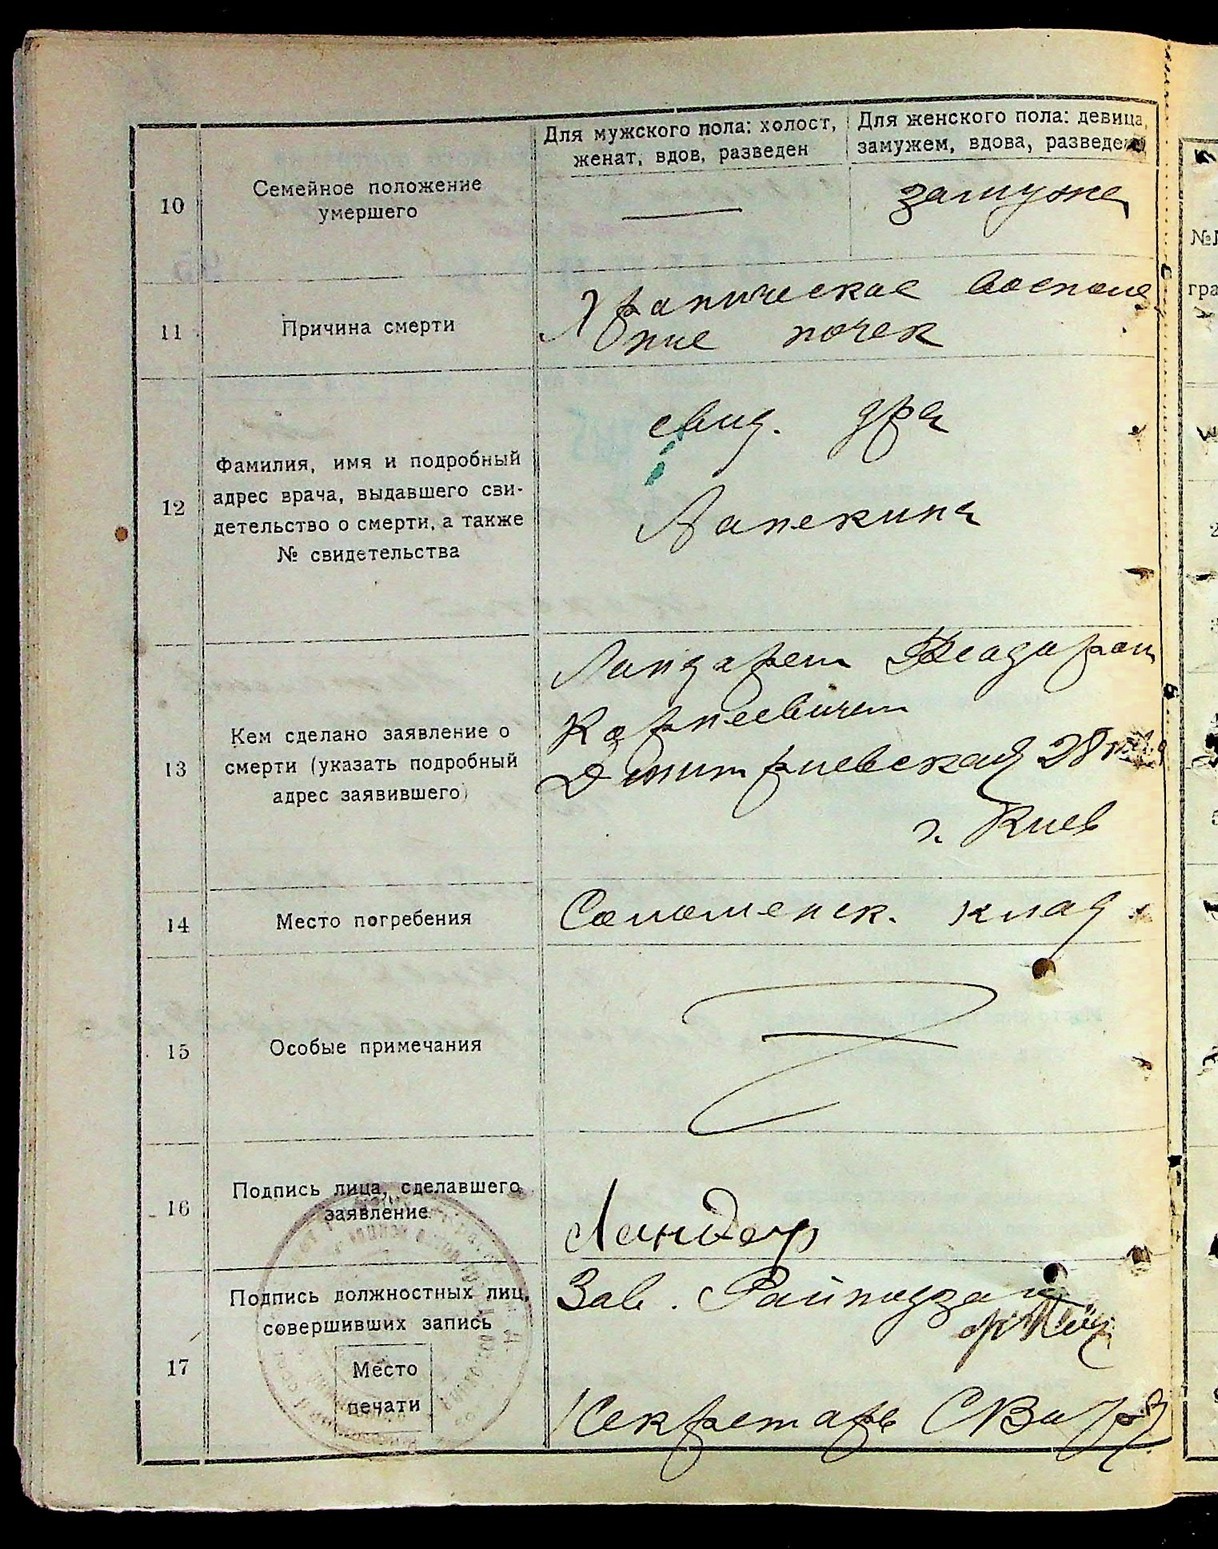 Для мужского пола: холост,
женат, вдов, разведен
Для женского пола: девица,
замужем, вдова, разведена
10
Семейное положение
умершего
—
замужем
11
Причина смерти
Хроническое воспале
ние почек
12
Фамилия, имя и подробный
адрес врача, выдавшего сви-
детельство о смерти, а также
№ свидетельства
свид. д-ра
Лапекина
13
Кем сделано заявление о
смерти (указать подробный
адрес заявившего)
Корнеевичем
Дмитриевская 28
г. Киев
14
Место погребения
Соломенск. клад
15
Особые примечания
16
Подпись лица, сделавшего
заявление
17
Подпись должностных лиц,
совершивших запись
Место
печати
Зав.
Секретарь
№
гра